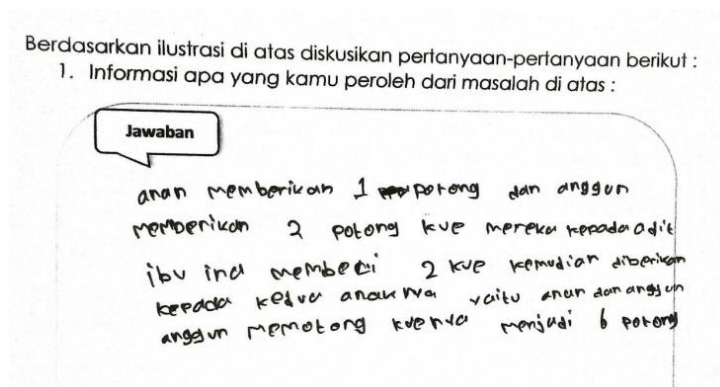 Berdasarkan ilustrasi di atas diskusikan pertanyaan-pertanyaan berikut :
1. Informasi apa yang kamu peroleh dari masalah di atas :
Jawaban
anan memberikan 1 potong dan anggun
memberikan 2 potong kue mereka kepada adit
ibu ina membeli 2 kue kemudian diberikan
kepada kedua anaknya yaitu anan dan anggun
anggun memotong kuenya menjadi 6 potong